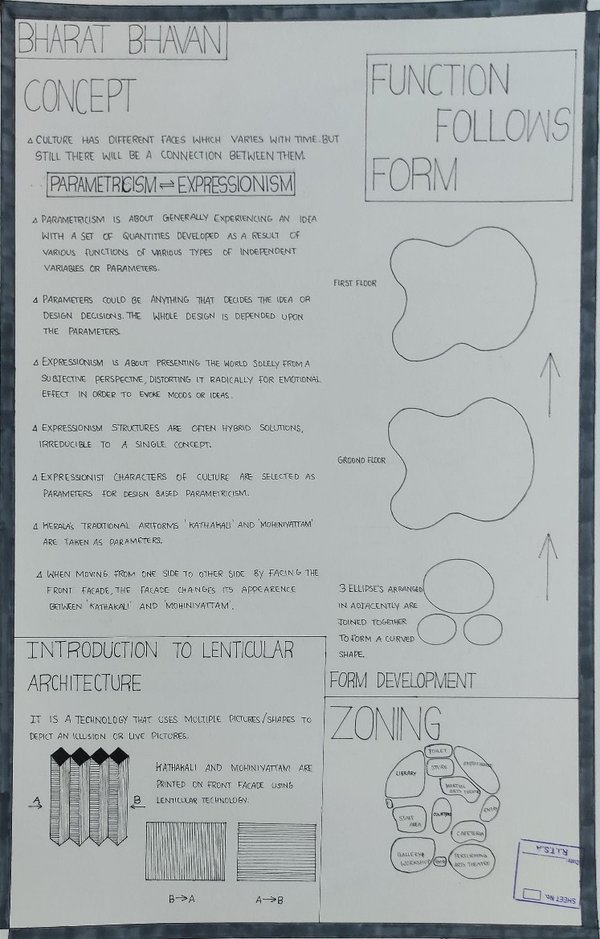 BHARAT BHAVAN
CONCEPT
CULTURE HAS DIFFERENT FACES WHICH VARIES WITH TIME BUT
STILL THERE WILL BE A CONNECTION BETWEEN THEM.
PARAMETRICISM ⇌ EXPRESSIONISM
PARAMETRICISM IS ABOUT GENERALLY EXPERIENCING AN IDEA
WITH A SET OF QUANTITIES DEVELOPED AS A RESULT OF
VARIOUS FUNCTIONS OF VARIOUS TYPES OF INDEPENDENT
VARIABLES OR PARAMETERS.
PARAMETERS COULD BE ANYTHING THAT DECIDES THE IDEA OR
DESIGN DECISIONS. THE WHOLE DESIGN IS DEPENDED UPON
THE PARAMETERS.
EXPRESSIONISM IS ABOUT PRESENTING THE WORLD SOLELY FROM A
SUBJECTIVE PERSPECTIVE, DISTORTING IT RADICALLY FOR EMOTIONAL
EFFECT IN ORDER TO EVOKE MOODS OR IDEAS.
EXPRESSIONISM STRUCTURES ARE OFTEN HYBRID SOLUTIONS,
IRREDUCIBLE TO A SINGLE CONCEPT.
EXPRESSIONIST CHARACTERS OF CULTURE ARE SELECTED AS
PARAMETERS FOR DESIGN BASED PARAMETRICISM.
KERALA'S TRADITIONAL ARTFORMS 'KATHAKALI' AND 'MOHINIYATTAM'
ARE TAKEN AS PARAMETERS.
WHEN MOVING FROM ONE SIDE TO OTHER SIDE BY FACING THE
FRONT FACADE, THE FACADE CHANGES ITS APPEARENCE
BETWEEN 'KATHAKALI' AND 'MOHINIYATTAM'.
INTRODUCTION TO LENTICULAR
ARCHITECTURE
IT IS A TECHNOLOGY THAT USES MULTIPLE PICTURES/SHAPES TO
DEPICT AN ILLUSION OR LIVE PICTURES.
KATHAKALI AND MOHINIYATTAM ARE
PRINTED ON FRONT FACADE USING
LENTICULAR TECHNOLOGY.
A
B
B→A
A→B
FUNCTION
FOLLOWS
FORM
FIRST FLOOR
GROUND FLOOR
3 ELLIPSE'S ARRANGED
IN ADJACENTLY ARE
JOINED TOGETHER
TO FORM A CURVED
SHAPE.
FORM DEVELOPMENT
ZONING
TOILET
STORE
LIBRARY
MARTIAL
ARTS THEATRE
STAFF
AREA
ENTRY
CAFETERIA
GALLERY &
WORKSHOP
PERFORMING
ARTS THEATRE
R.I.T.S.A
Date
SHEET No.